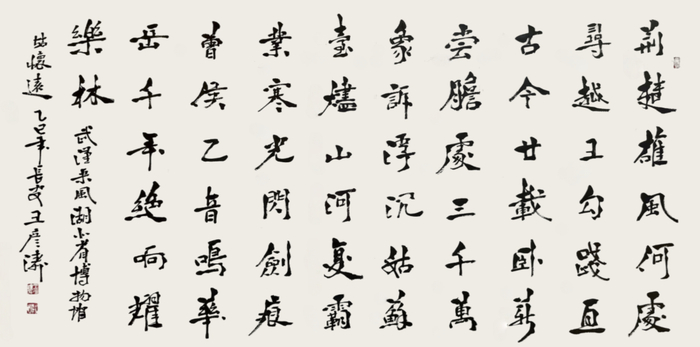 荆楚雄風何處
尋越王勾踐亘
古今廿載卧薪
尝膽處三千萬
象訴浮沉姑蘇
臺燼山河复霸
業寒光閃劍痕
曾侯乙音鳴華
岳千年絶响耀
樂林
武漢采風湖北省博物馆
懷遠乙巳年長安王彦濤